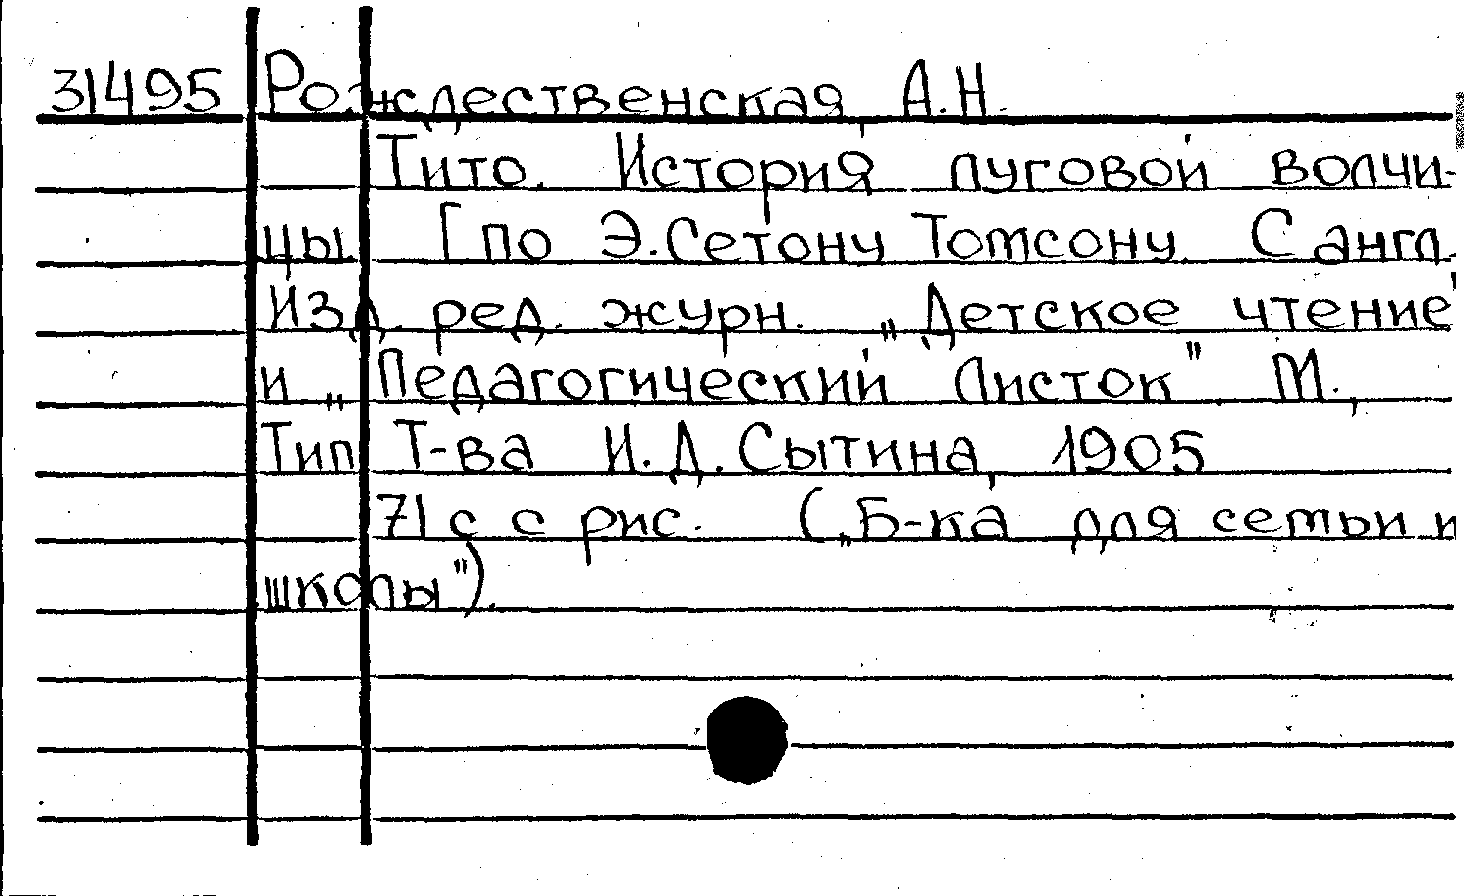 31495 Рождественская, А.Н.
Тито. История луговой волчи-
цы. [по Э.Сетону Томсону. С англ.
Изд. ред. журн. „Детское чтение"
и „Педагогический листок". М.,
Тип. Т-ва И.Д.Сытина, 1905
71 с с рис. („Б-ка для семьи и
школы").